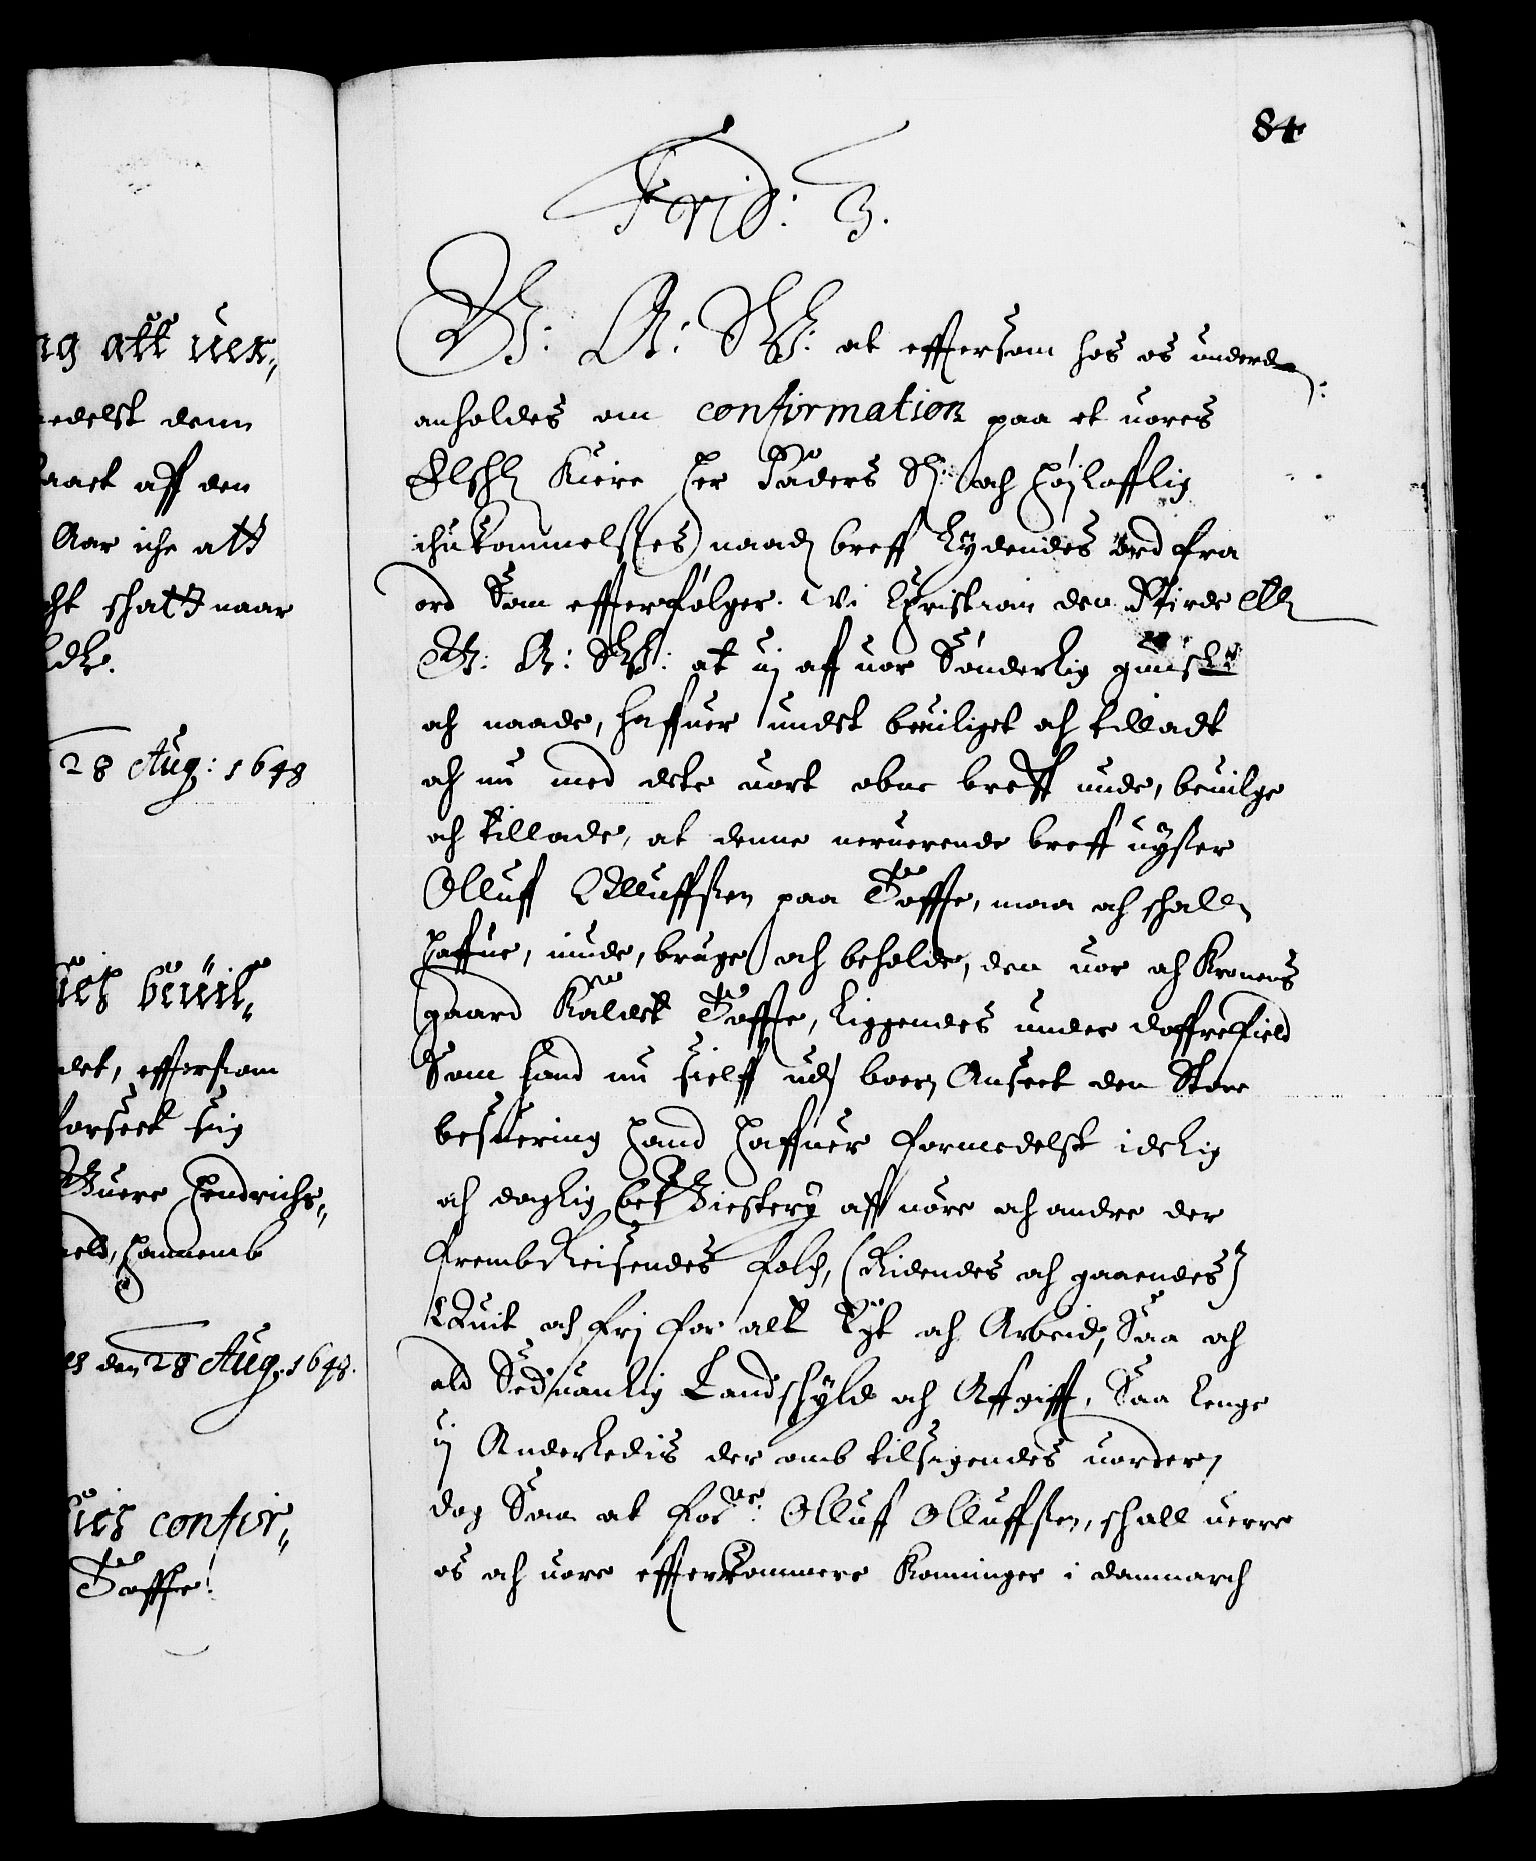 84
Frid: 3.
ng att uer„
edelst denn
aaet aff den
Aar iche att
cht schatt naar
28 Aug: 1648
ues beuil„
det, effersom
forseet sig
Guere Hendrichs„
ield, Hannemb
es den 28 Aug: 1648.
ues confir„
Toffte:
W: A: SW: at effersom hos os underd:
anholdes om confirmation paa et uores
Elschl Kiere Her Faders S: och Høylofflig
ihukommelses naad breff Lydendes ord fra
ord Som effterfølger. Wi Christian den Fierde etc
W: A: SW: at uj aff uor Sønderlig gunst
och naade, haffuer undt beuiliget och tilladt
och nu med dette uort obne breff unde, beuilge
och tillade, at denne neruerende breff uyser
Olluff Olluffsen paa Toffte, maa och schall
Haffue, niude, bruge och beholde, den uor och Kronens
gaard Kaldet Toffte, liggendes under doffrefield
Som hand nu sielff udj boer, Anseet den Store
besuering Hand Haffuer formedelst idelig
och daglig Giesterj aff uore och andre der
fremb Reisendes folch, (Ridendes och gaaendes)
Quit och frj for alt Egt och Arbeid, Saa och
ald Seduanlig Landschyld och Affgifft, Saa lenge
uj Anderledis der omb tilsigendes uorder,
dog Saa at for: Olluff Olluffsen, schall uerre
os och uore effterkommere Konninger i danmarch